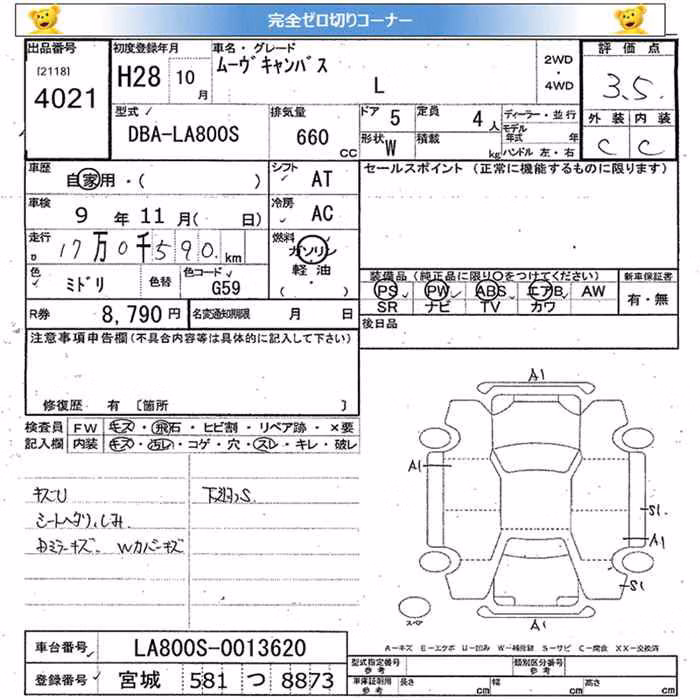 完全ゼロ切りコーナー
出品番号 [2118] 4021
初度登録年月 H28 10月
車名・グレード ムーヴキャンバス L
2WD・4WD
評価点 3.5
型式 DBA-LA800S
排気量 660 CC
ドア 5 定員 4人
形状 W 積載 kg
ディーラー・並行
モデル年式 年
ハンドル 左・右
外装 C 内装 C
車歴 自家用・( )
シフト AT
セールスポイント (正常に機能するものに限ります)
車検 9年11月( 日)
冷房 AC
走行 17万0千590km
燃料 ガソリン 軽油 ( ・ )
色 ミドリ 色替 色コード G59
装備品 (純正品に限り〇をつけてください) 新車保証書
PS PW ABS エアB AW 有・無
SR ナビ TV カワ
R券 8,790円 名変通知期限 月 日
後日品
注意事項申告欄(不具合内容等は具体的に記入して下さい)
修復歴 有 [箇所 ]
検査員 FW キズ・飛石・ヒビ割・リペア跡・×要
記入欄 内装 キズ・汚レ・コゲ・穴・スレ・キレ・破レ
キズU
シートヘタリ、しみ
Dミラーキズ、Wカバーキズ
S.
A1
A1
S1.
A1
S1
スペア
A-キズ E-エクボ U-凹み W-補修跡 S-サビ C-腐食 XX-交換済
車台番号 LA800S-0013620
登録番号 宮城 581 つ 8873
型式指定番号 参考 類別区分番号 参考
車庫証明用 参考 長さ cm 幅 cm 高さ cm